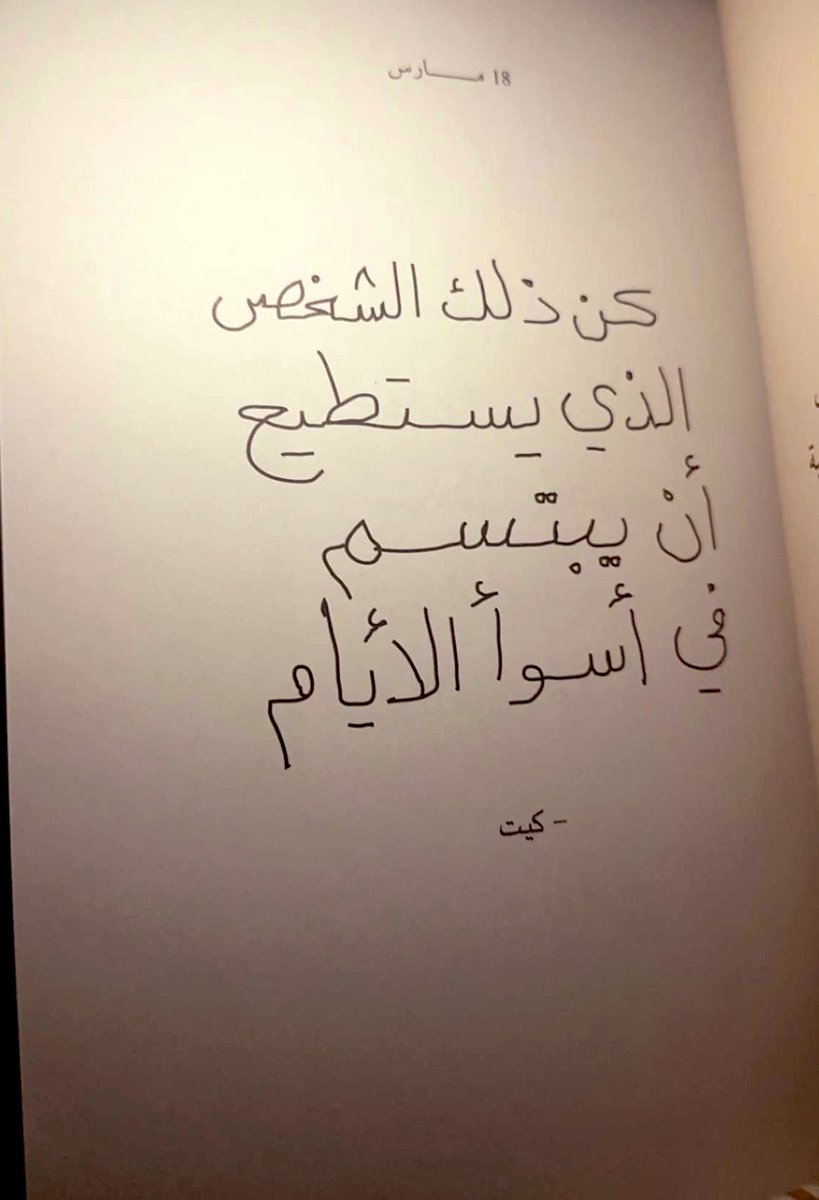 18 مارس
كن ذلك الشخص
الذي يستطيع
أنْ يبْتسم
في أسوأ الأيام
- كيت